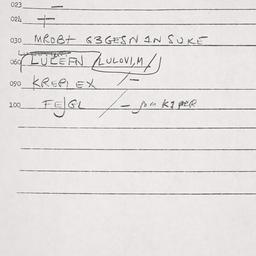 023 —
024 +
030 MROBT G3GESN IN SUKE
060 LUCEFN (LULOVI,M)
090 KREPL EX / —
100 FEJGL / —